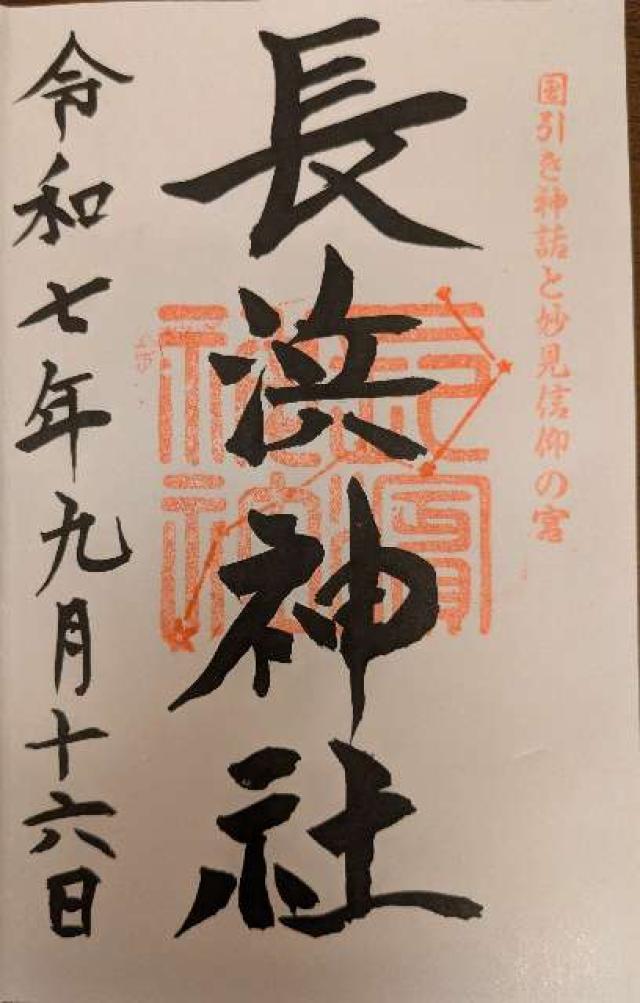 国引き神話と妙見信仰の宮
長浜神社
令和七年九月十六日